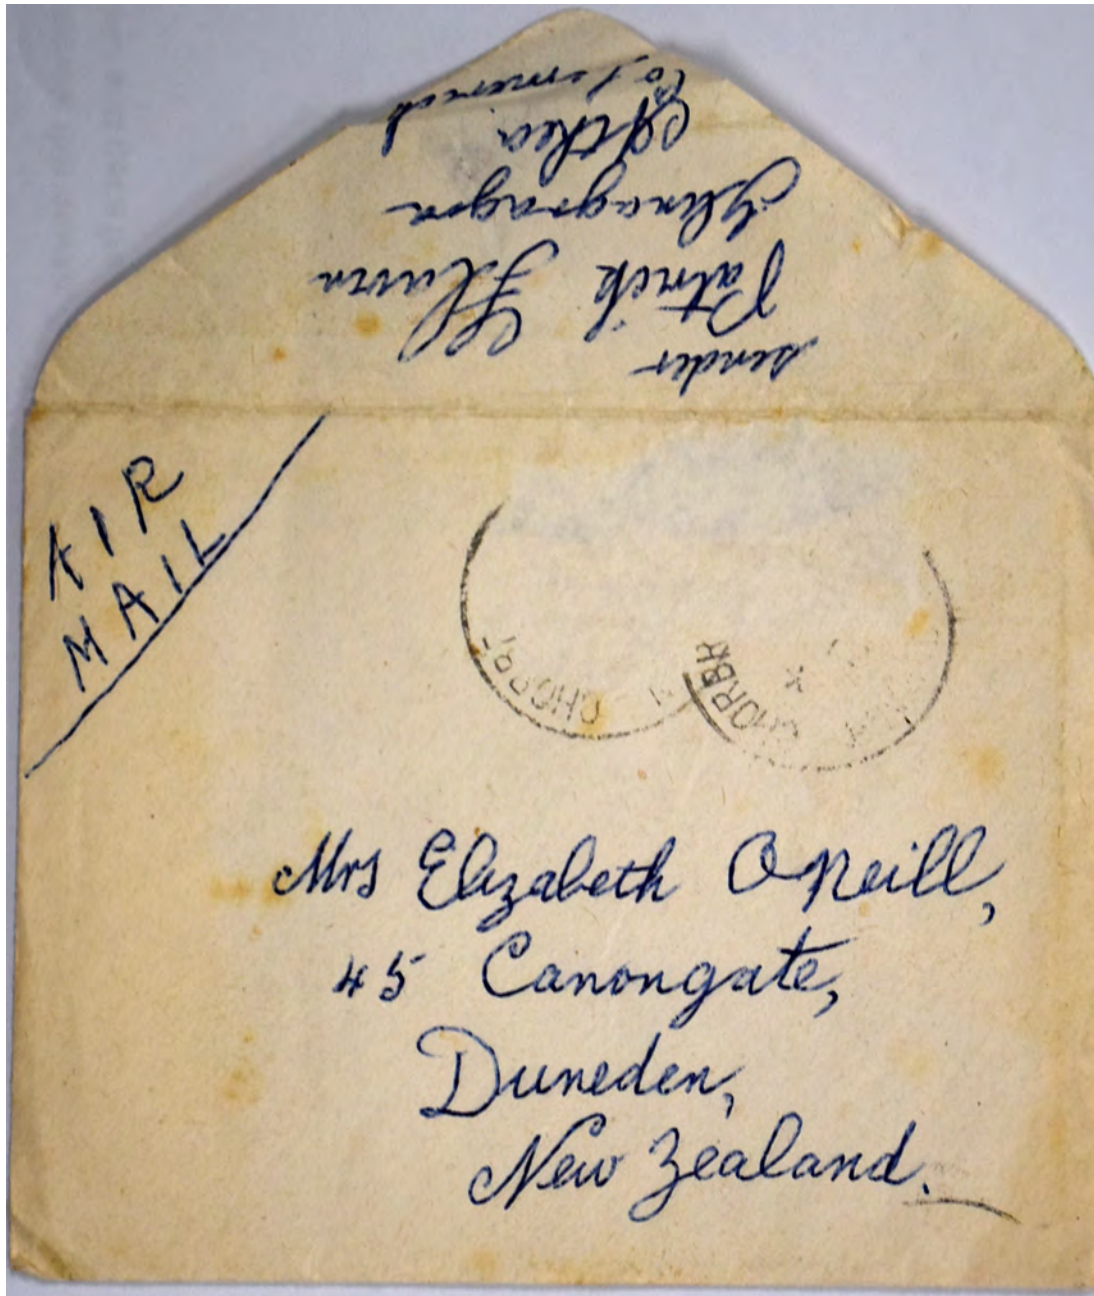 sender
Patrick Flavin
Glenagragra
Athea
Co Limerick
AIR
MAIL
CHORBH
Mrs Elizabeth O Neill,
45 Canongate,
Duneden,
New Zealand.